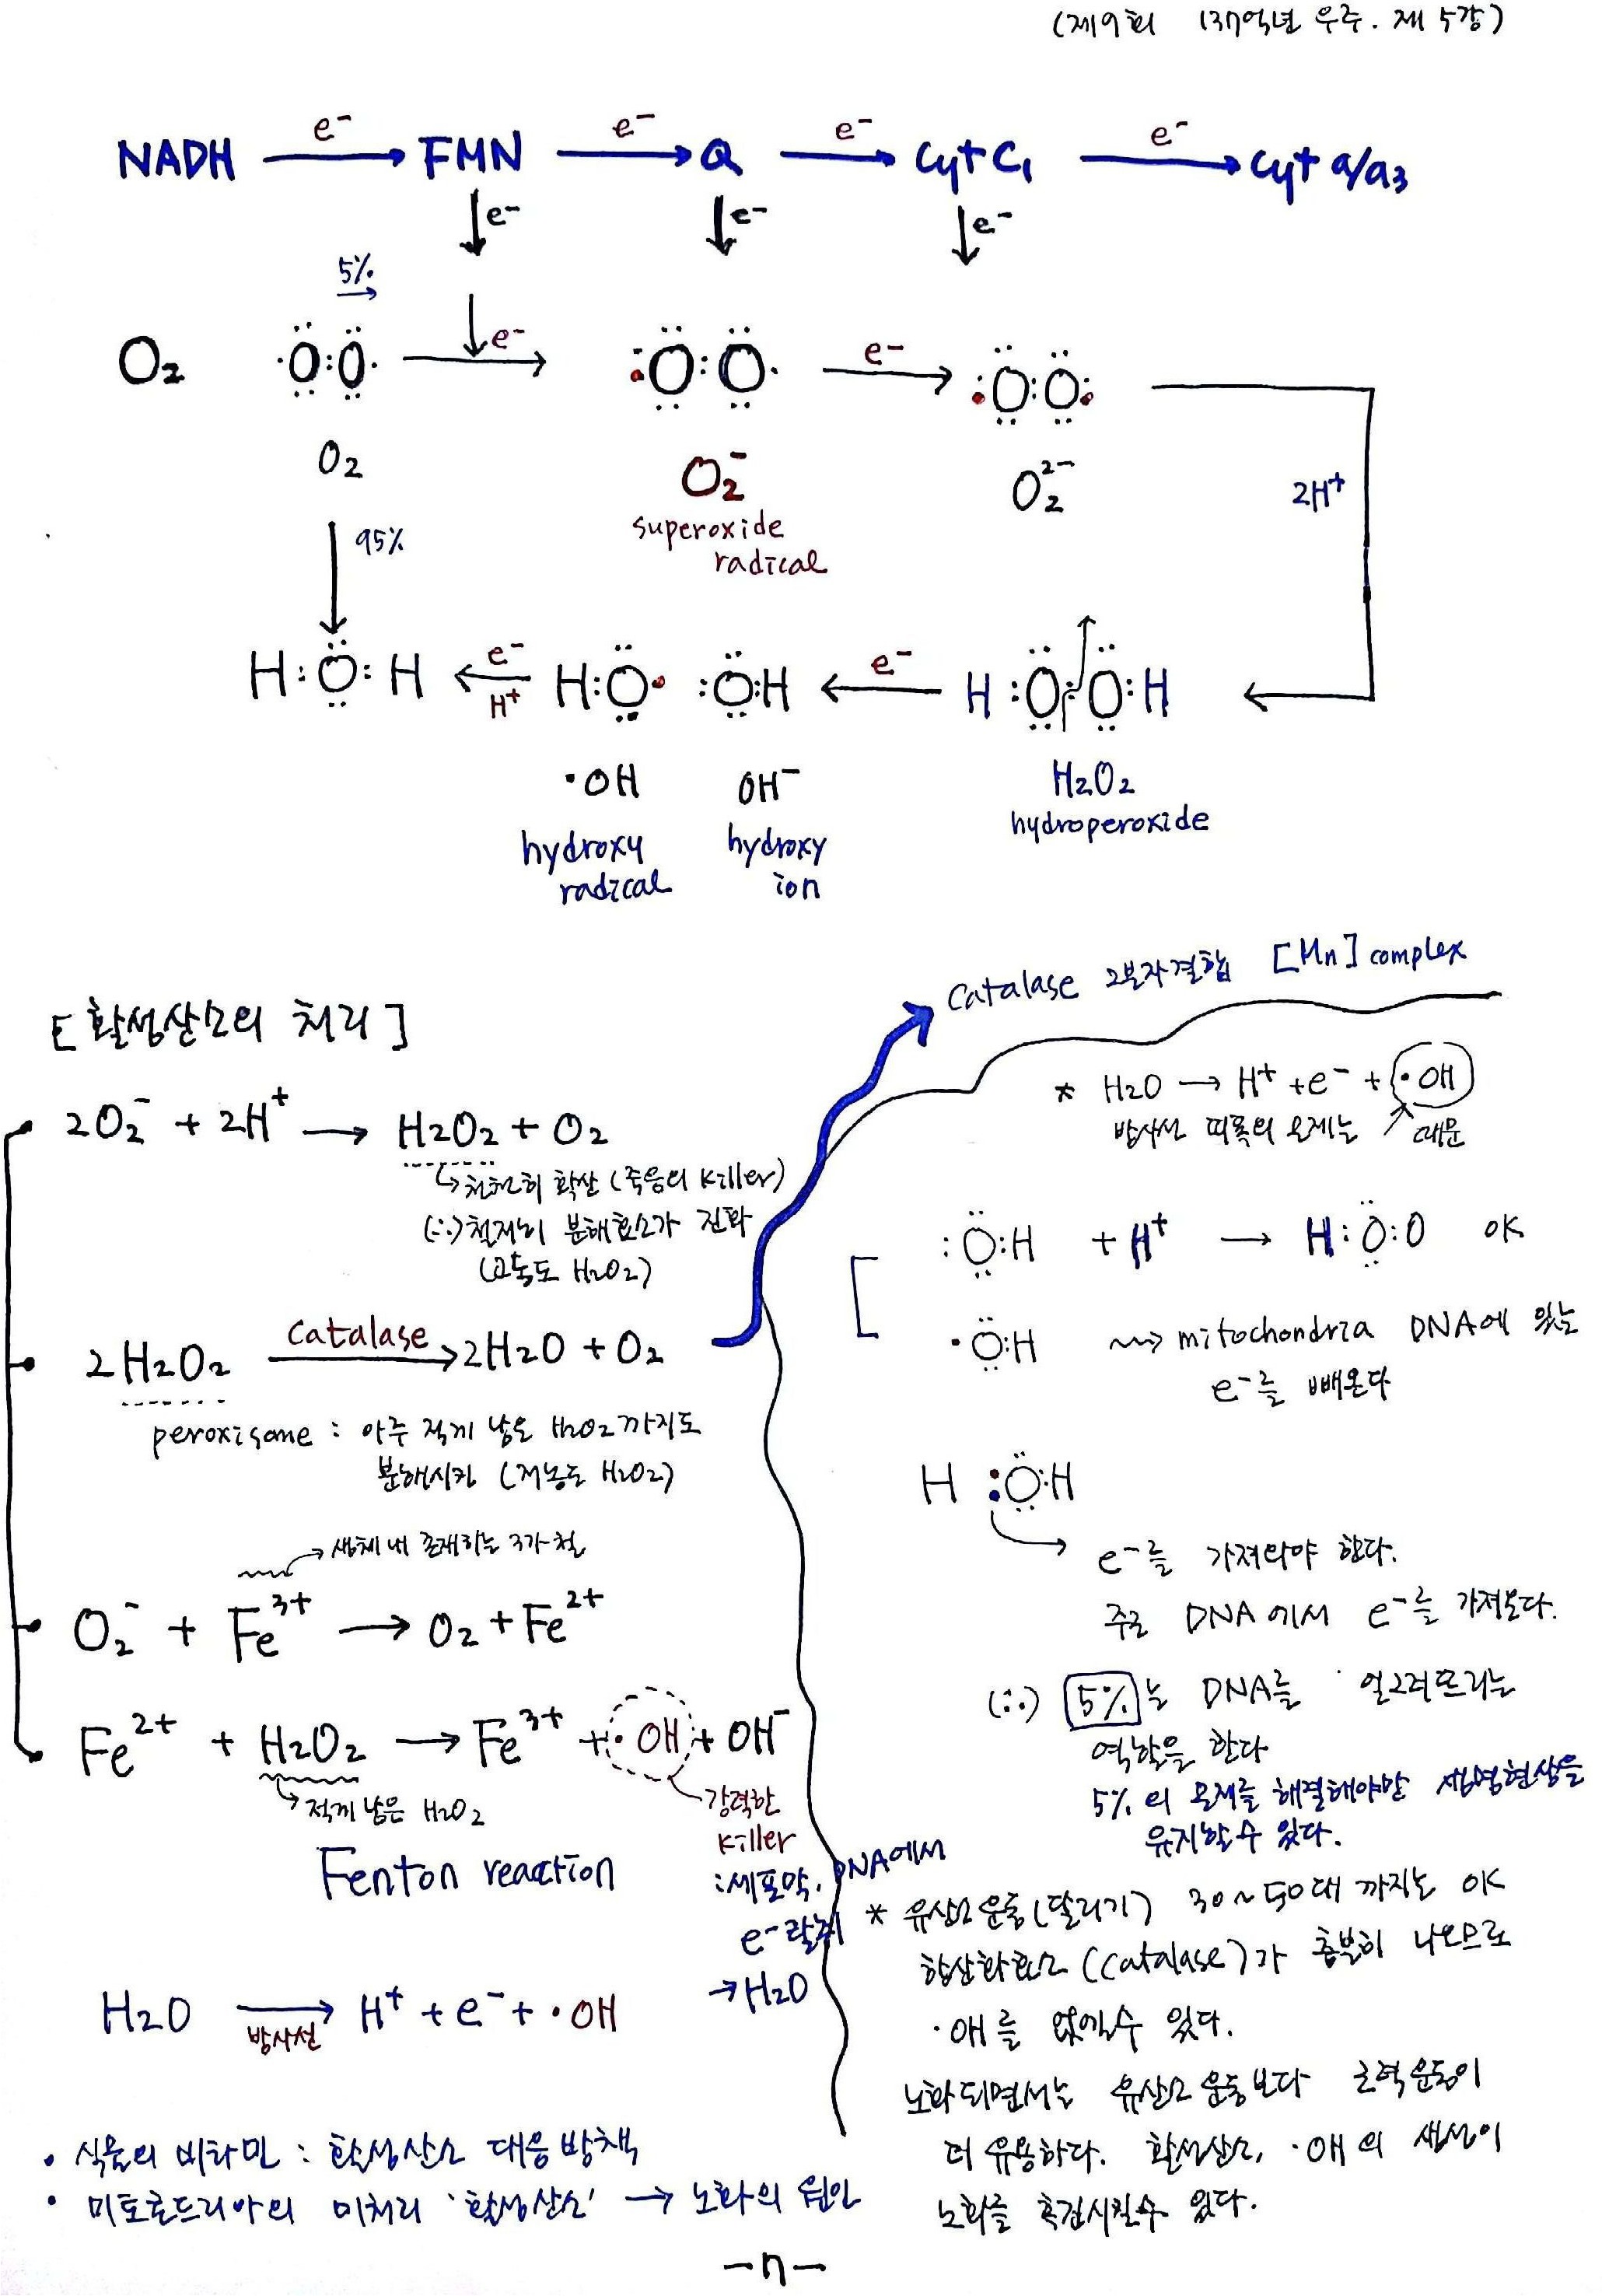 (제9회 137억년 우주. 제 5강)
NADH e- → FMN e- → Q e- → Cyt C₁ e- → Cyt a/a₃
↓ e- ↓ e- ↓ e-
5% →
O₂ ·O:O· → e- :O:O· e- → :O:O: 
O₂ O₂⁻ O₂²⁻ 2H⁺
superoxide
radical
↓ 95%
H:O:H ← e- H⁺ H:O· :O:H ← e- H:O:O:H ←
·OH OH⁻ H₂O₂
hydroxy radical hydroxy ion hydroperoxide
[활성산소의 처리]
2O₂⁻ + 2H⁺ → H₂O₂ + O₂
↳ 천천히 확산 (죽음의 killer)
(∴) 철저히 분해효소가 진화
(고농도 H₂O₂)
2H₂O₂ catalase → 2H₂O + O₂
peroxisome : 아주 적게 남은 H₂O₂까지도
분해시킴 (저농도 H₂O₂)
→ 생체 내 존재하는 3가 철
O₂⁻ + Fe³⁺ → O₂ + Fe²⁺
Fe²⁺ + H₂O₂ → Fe³⁺ + ·OH + OH⁻
↳ 적게 남은 H₂O₂
강력한
killer
Fenton reaction
: 세포막, DNA에서
e- 탈취
→ H₂O
H₂O 방사선 → H⁺ + e⁻ + ·OH
• 식물의 비타민 : 활성산소 대응 방책
• 미토콘드리아의 미처리 '활성산소' → 노화의 원인
catalase 2분자결합 [Mn] complex
* H₂O → H⁺ + e⁻ + ·OH
방사선 피폭의 문제는 ↗ 때문
:O:H + H⁺ → H:O:O OK
·O:H ⇝ mitochondria DNA에 있는
e-를 빼온다
H :O:H
→ e-를 가져와야 한다.
주로 DNA에서 e-를 가져온다.
(∴) 5%는 DNA를 엎그러뜨리는
역할을 한다
5%의 문제를 해결해야만 생명현상을
유지할 수 있다.
* 유산소 운동(달리기) 30~50대 까지는 OK
항산화효소 (catalase)가 충분히 나오므로
·OH를 없앨 수 있다.
노화되면서는 유산소 운동보다 근력운동이
더 유용하다. 활성산소, ·OH의 생성이
노화를 촉진시킬수 있다.
-7-